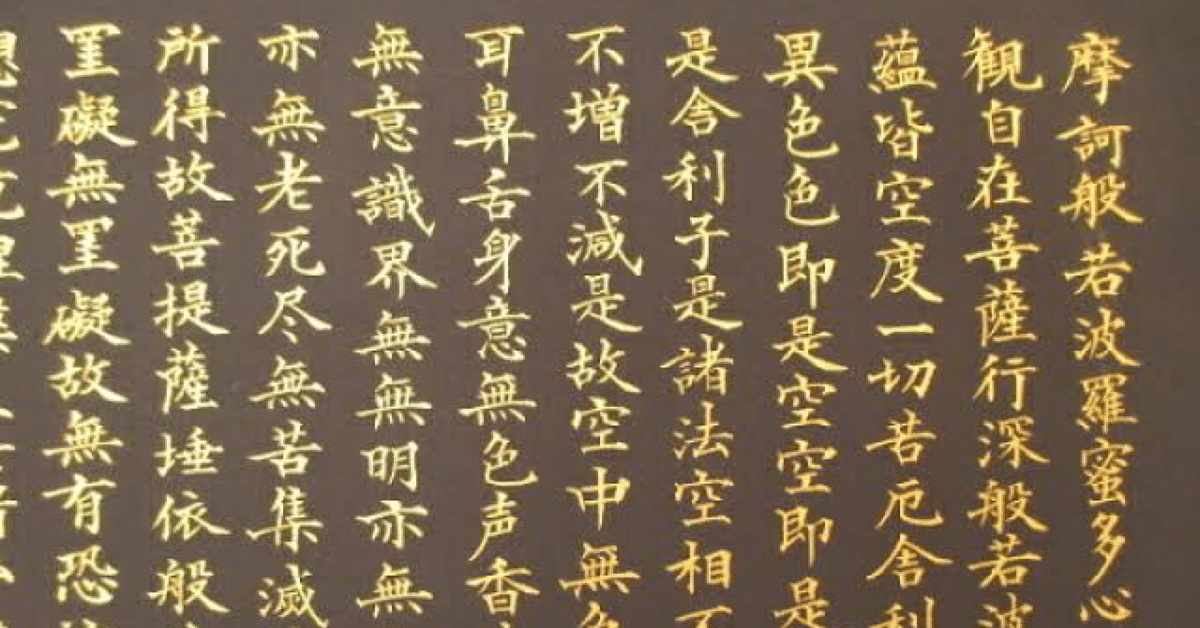 摩訶般若波羅蜜多心
観自在菩薩行深般若波
蘊皆空度一切苦厄舎利
異色色即是空空即是
是舎利子是諸法空相不
不増不減是故空中無色
耳鼻舌身意無色声香
無意識界無無明亦無
亦無老死尽無苦集滅
所得故菩提薩埵依般
罣礙無罣礙故無有恐